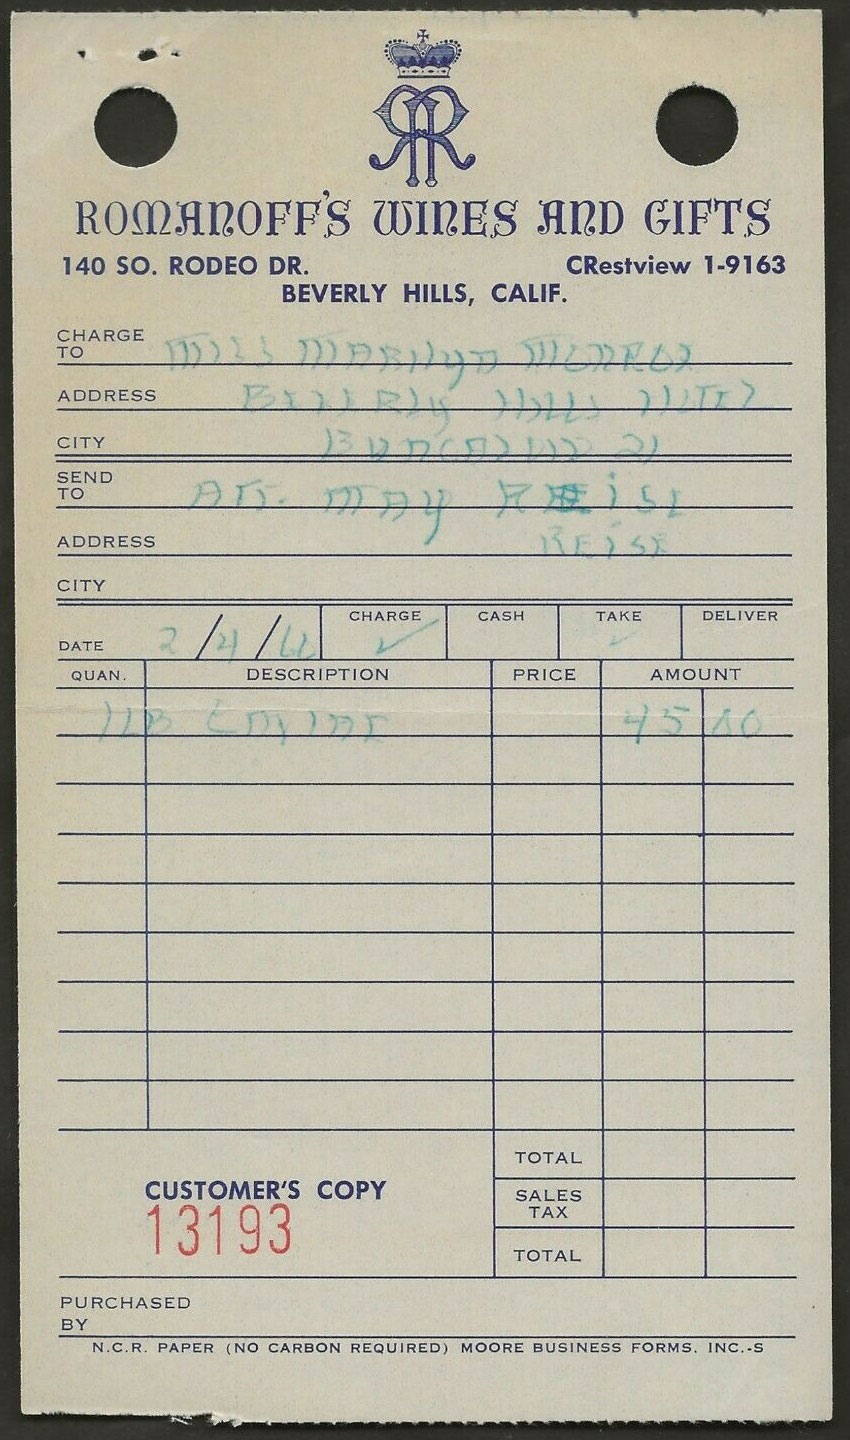 RR
ROMANOFF'S WINES AND GIFTS
140 SO. RODEO DR. CRestview 1-9163
BEVERLY HILLS, CALIF.
CHARGE TO Miss Marilyn Monroe
ADDRESS Beverly Hills Hotel
CITY Bungalow 21
SEND TO Att. May Reise
ADDRESS Reise
CITY
CHARGE CASH TAKE DELIVER
DATE 2/4/ ✓ ✓
QUAN. DESCRIPTION PRICE AMOUNT
1 LB 45 00
TOTAL
CUSTOMER'S COPY
SALES TAX
13193
TOTAL
PURCHASED BY
N.C.R. PAPER (NO CARBON REQUIRED) MOORE BUSINESS FORMS, INC.-S